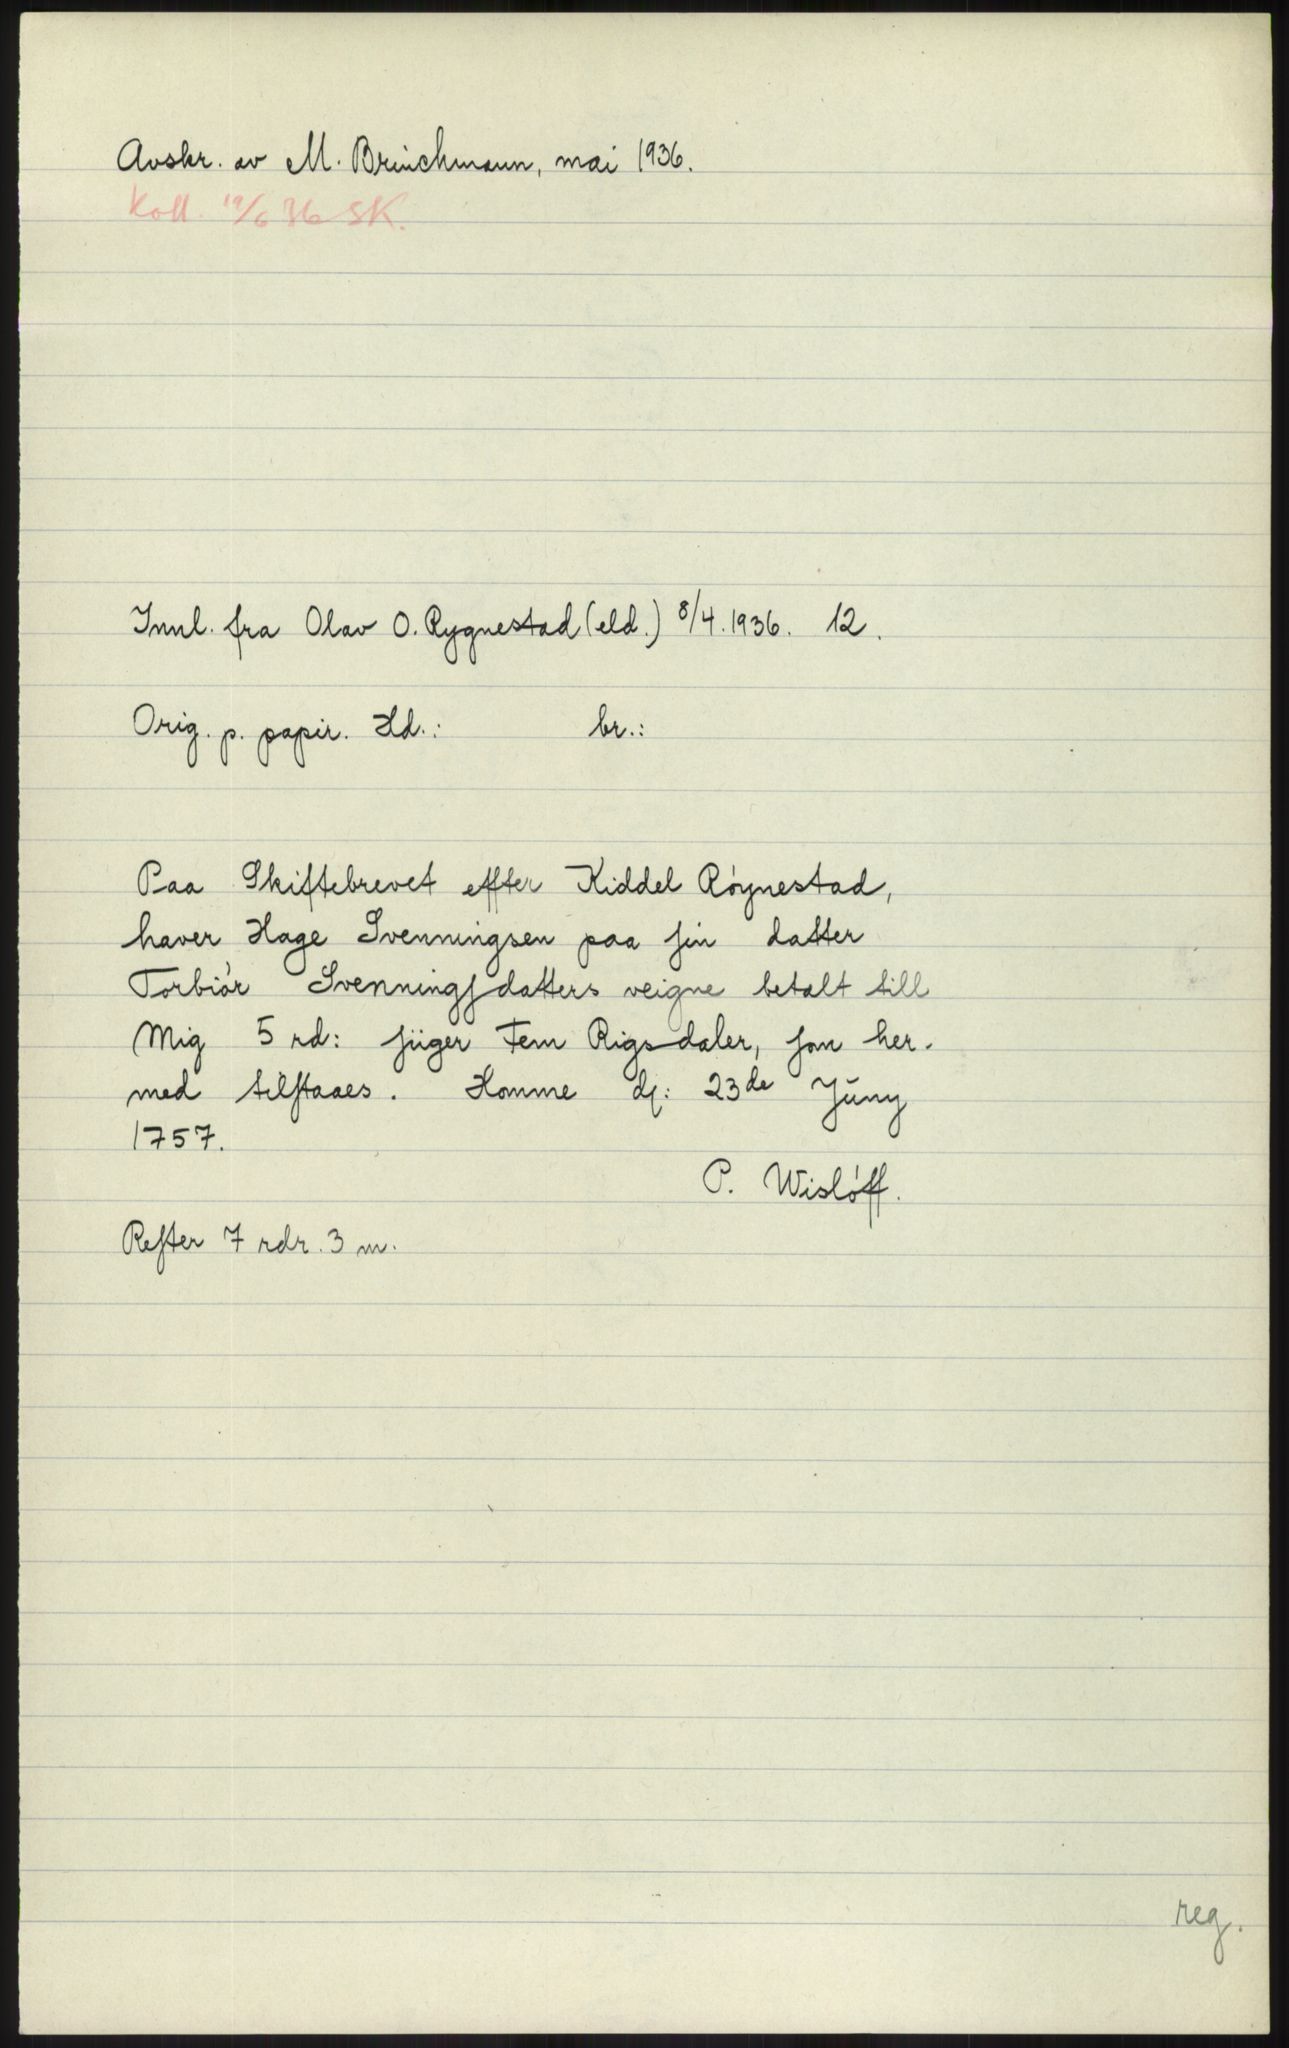 Avskr. av M. Brinchmann, mai 1936.
Koll. 19/6 36 SK.
Innl. fra Olav O. Rygnestad (eld.) 8/4.1936. 12.
Orig. p. papir. Hd.: br.:
Paa Skiftebrevet effter Kiddel Röynestad,
haver Hage Svenningsen paa ſin datter
Torbiör Svenningſdatters veigne betalt till
Mig 5 rd: ſiiger Fem Rigsdaler, ſom her-
med tilſtaaes. Homme dſ: 23de Jŭny
1757.
P. Wislöff.
Reſter 7 rdr. 3 m.
reg.